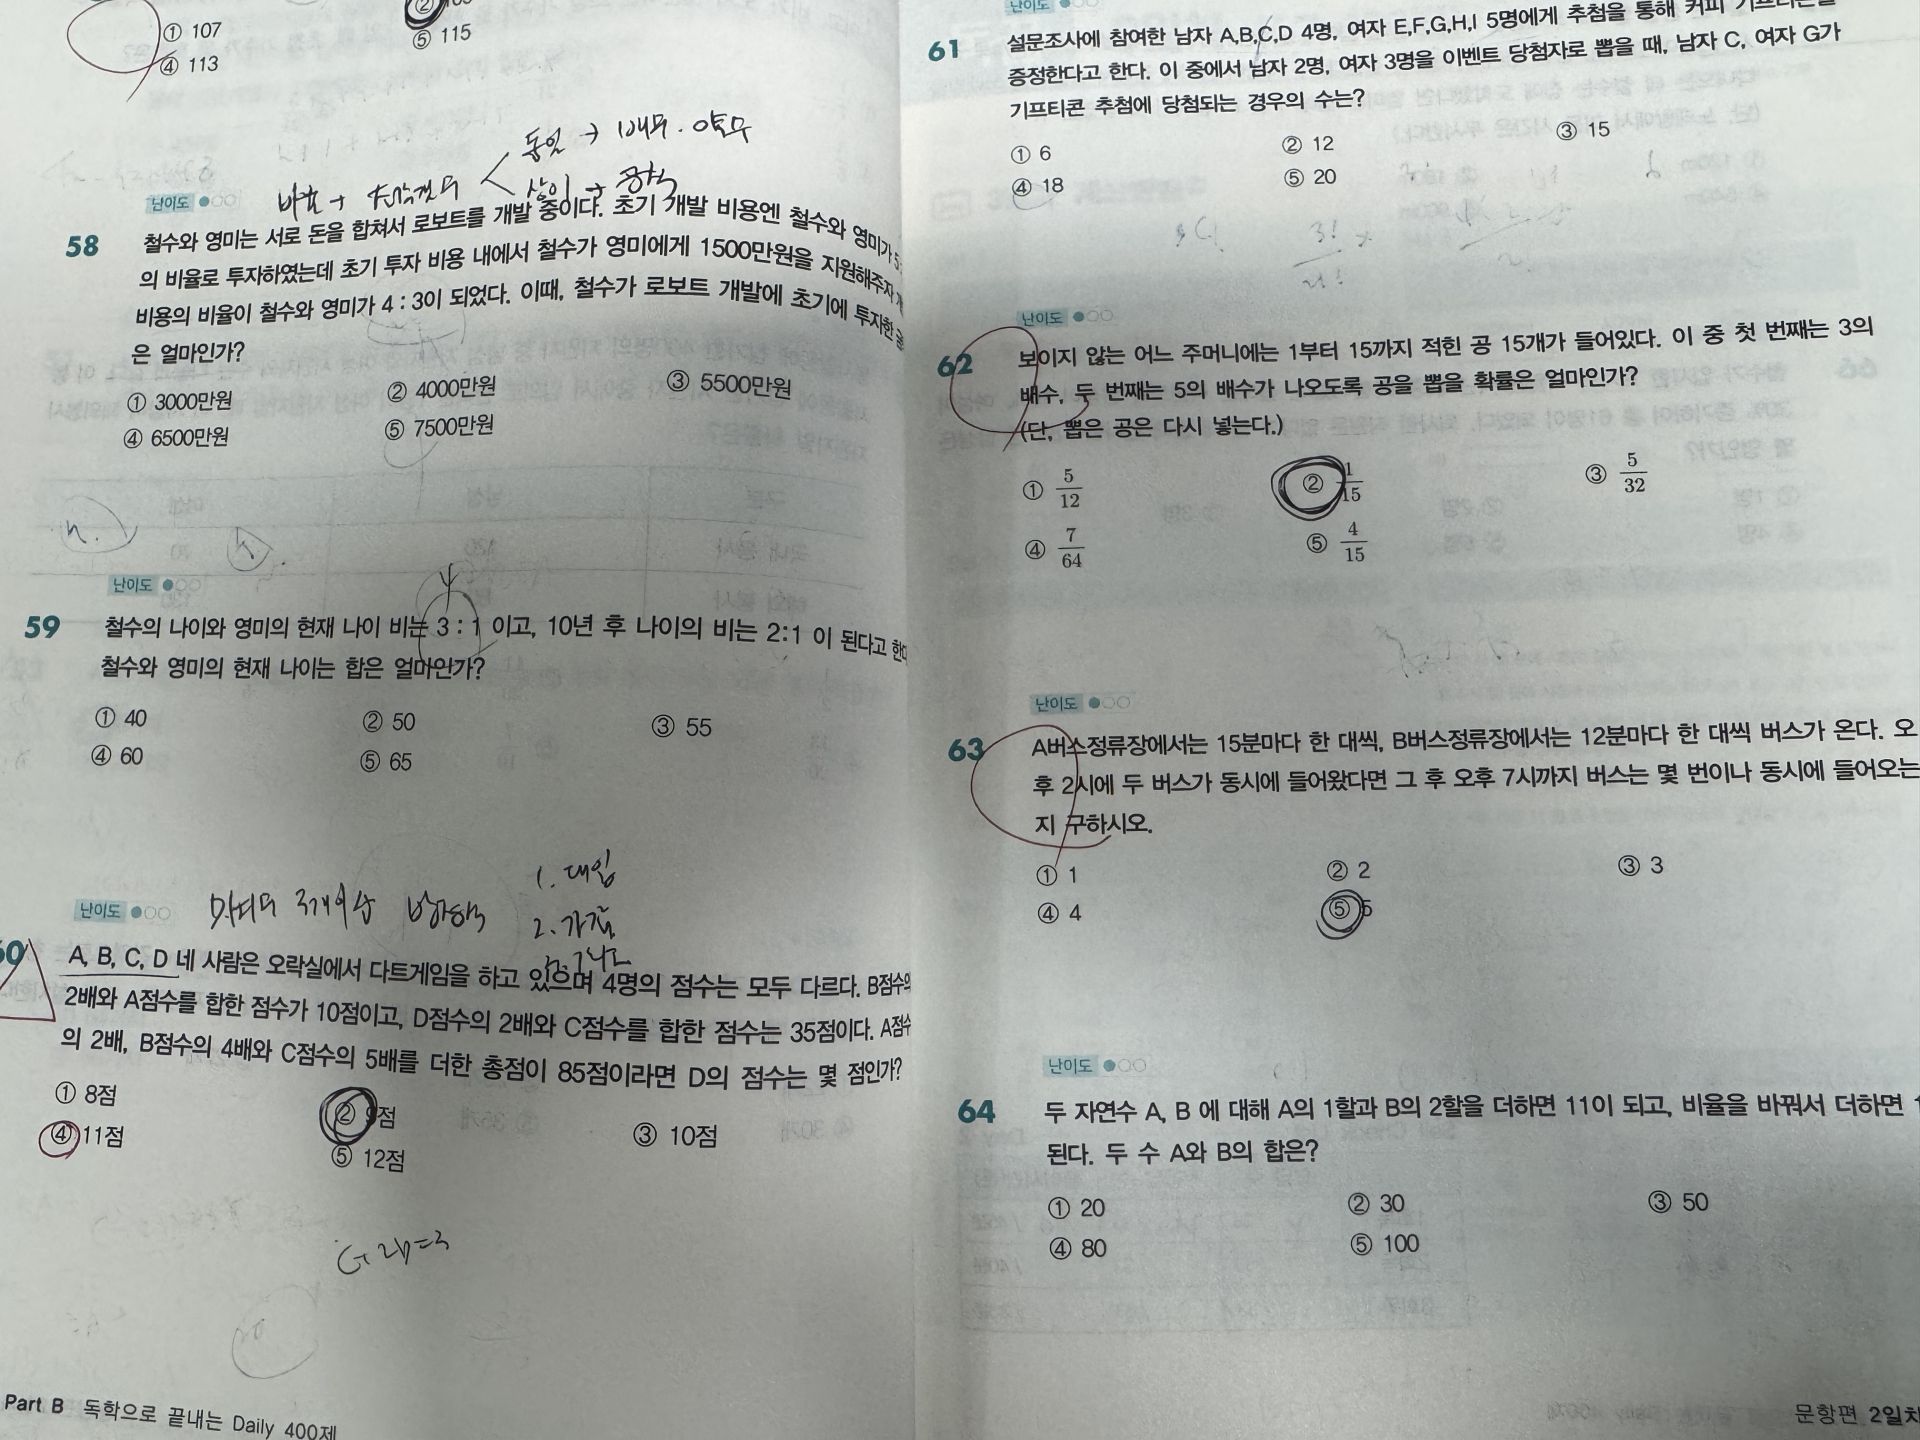 ① 107
⑤ 115
④ 113
바표 → 大각것의 < 동일 → 1배무. 야호무
상이 → 공식
난이도
58 철수와 영미는 서로 돈을 합쳐서 로보트를 개발 중이다. 초기 개발 비용엔 철수와 영미가 5:
의 비율로 투자하였는데 초기 투자 비용 내에서 철수가 영미에게 1500만원을 지원해주자
비용의 비율이 철수와 영미가 4 : 3이 되었다. 이때, 철수가 로보트 개발에 초기에 투자한
은 얼마인가?
① 3000만원 ② 4000만원 ③ 5500만원
④ 6500만원 ⑤ 7500만원
난이도
59 철수의 나이와 영미의 현재 나이 비는 3 : 1 이고, 10년 후 나이의 비는 2:1 이 된다고 한다
철수와 영미의 현재 나이는 합은 얼마인가?
① 40 ② 50 ③ 55
④ 60 ⑤ 65
미지수 3개이상 방정식
1. 대입
2. 가감
난이도
60 A, B, C, D 네 사람은 오락실에서 다트게임을 하고 있으며 4명의 점수는 모두 다르다. B점수의
2배와 A점수를 합한 점수가 10점이고, D점수의 2배와 C점수를 합한 점수는 35점이다. A점수
의 2배, B점수의 4배와 C점수의 5배를 더한 총점이 85점이라면 D의 점수는 몇 점인가?
① 8점 ② 9점 ③ 10점
④ 11점 ⑤ 12점
Part B 독학으로 끝내는 Daily 400제
난이도
61 설문조사에 참여한 남자 A,B,C,D 4명, 여자 E,F,G,H,I 5명에게 추첨을 통해 커피 기프티콘을
증정한다고 한다. 이 중에서 남자 2명, 여자 3명을 이벤트 당첨자로 뽑을 때, 남자 C, 여자 G가
기프티콘 추첨에 당첨되는 경우의 수는?
① 6 ② 12 ③ 15
④ 18 ⑤ 20
난이도
62 보이지 않는 어느 주머니에는 1부터 15까지 적힌 공 15개가 들어있다. 이 중 첫 번째는 3의
배수, 두 번째는 5의 배수가 나오도록 공을 뽑을 확률은 얼마인가?
(단, 뽑은 공은 다시 넣는다.)
① 5/12 ② 1/15 ③ 5/32
④ 7/64 ⑤ 4/15
난이도
63 A버스정류장에서는 15분마다 한 대씩, B버스정류장에서는 12분마다 한 대씩 버스가 온다. 오
후 2시에 두 버스가 동시에 들어왔다면 그 후 오후 7시까지 버스는 몇 번이나 동시에 들어오는
지 구하시오.
① 1 ② 2 ③ 3
④ 4 ⑤ 5
난이도
64 두 자연수 A, B 에 대해 A의 1할과 B의 2할을 더하면 11이 되고, 비율을 바꿔서 더하면
된다. 두 수 A와 B의 합은?
① 20 ② 30 ③ 50
④ 80 ⑤ 100
문항편 2일차